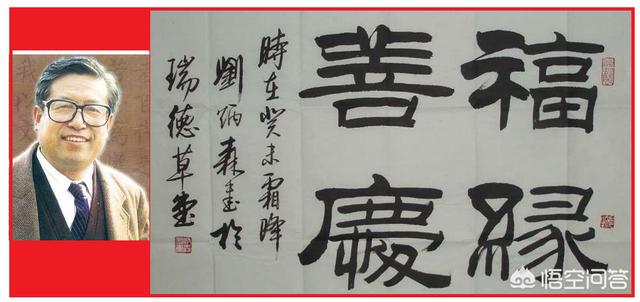 福緣
善慶
時在癸未霜降
劉炳森書於
瑞德草堂
悟空问答